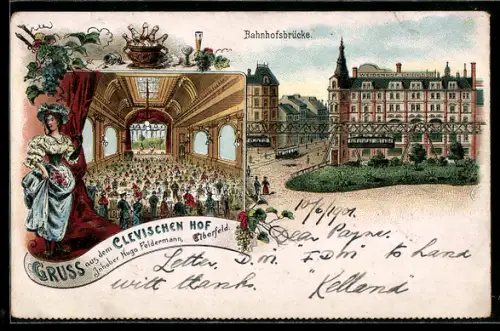 Bahnhofsbrücke.
GRUSS aus dem CLEVISCHEN HOF
Inhaber Hugo Feldermann, Elberfeld.
10/6/1901.
Dear Payne.
Letter, to hand
with thanks. Kelland